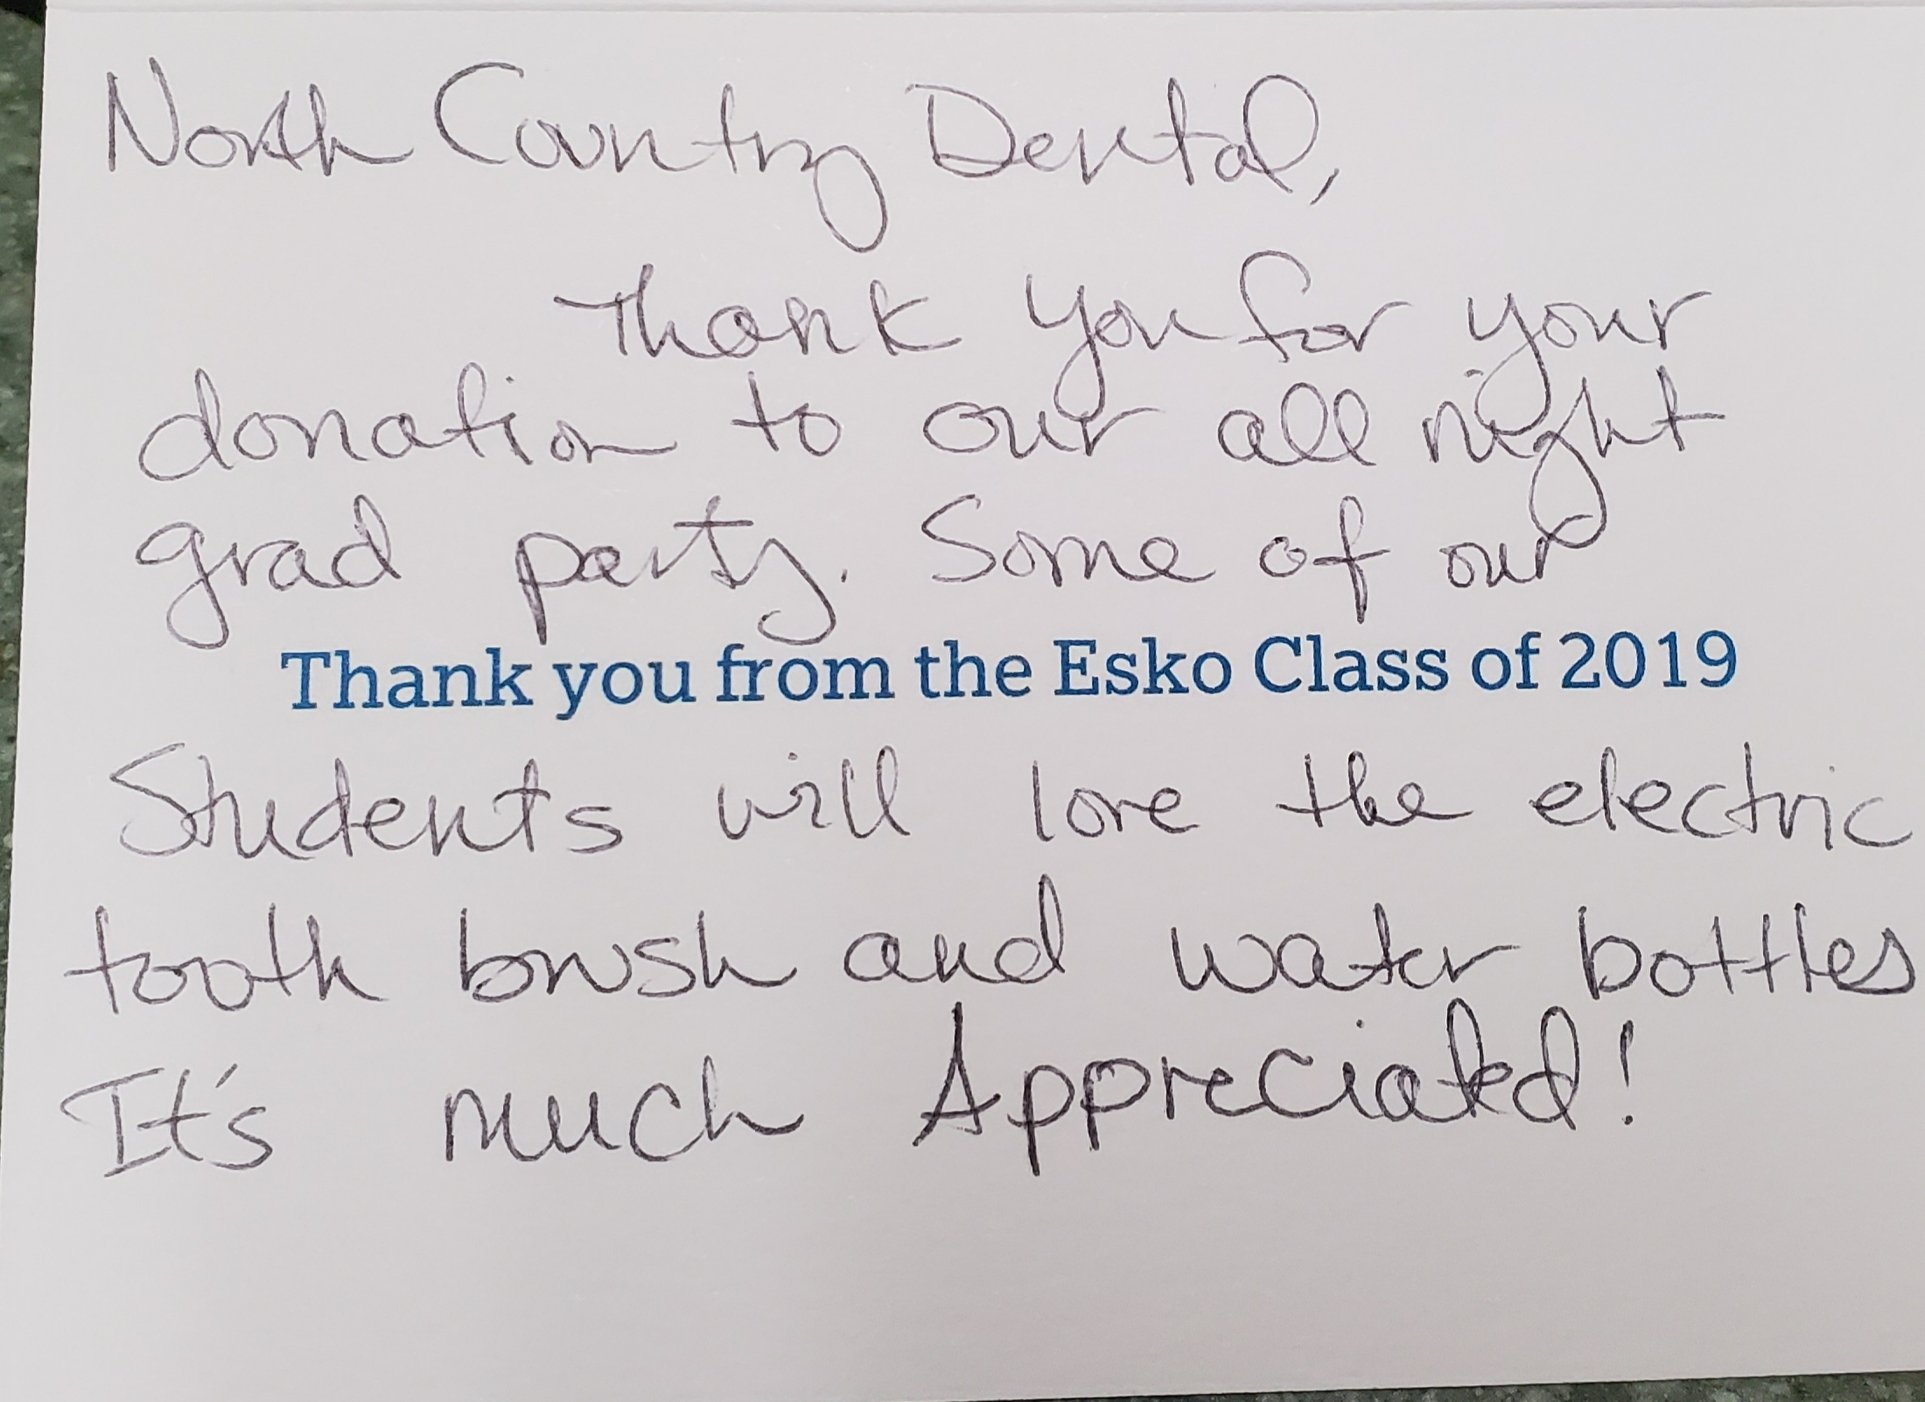 North Country Dental,
Thank you for your
donation to our all night
grad party. Some of our
Thank you from the Esko Class of 2019
Students will love the electric
tooth brush and water bottles
It's much Appreciated!